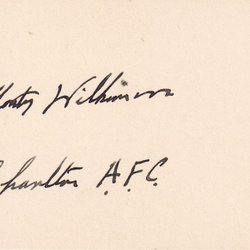 Monty Wilkinson
Charlton A.F.C.